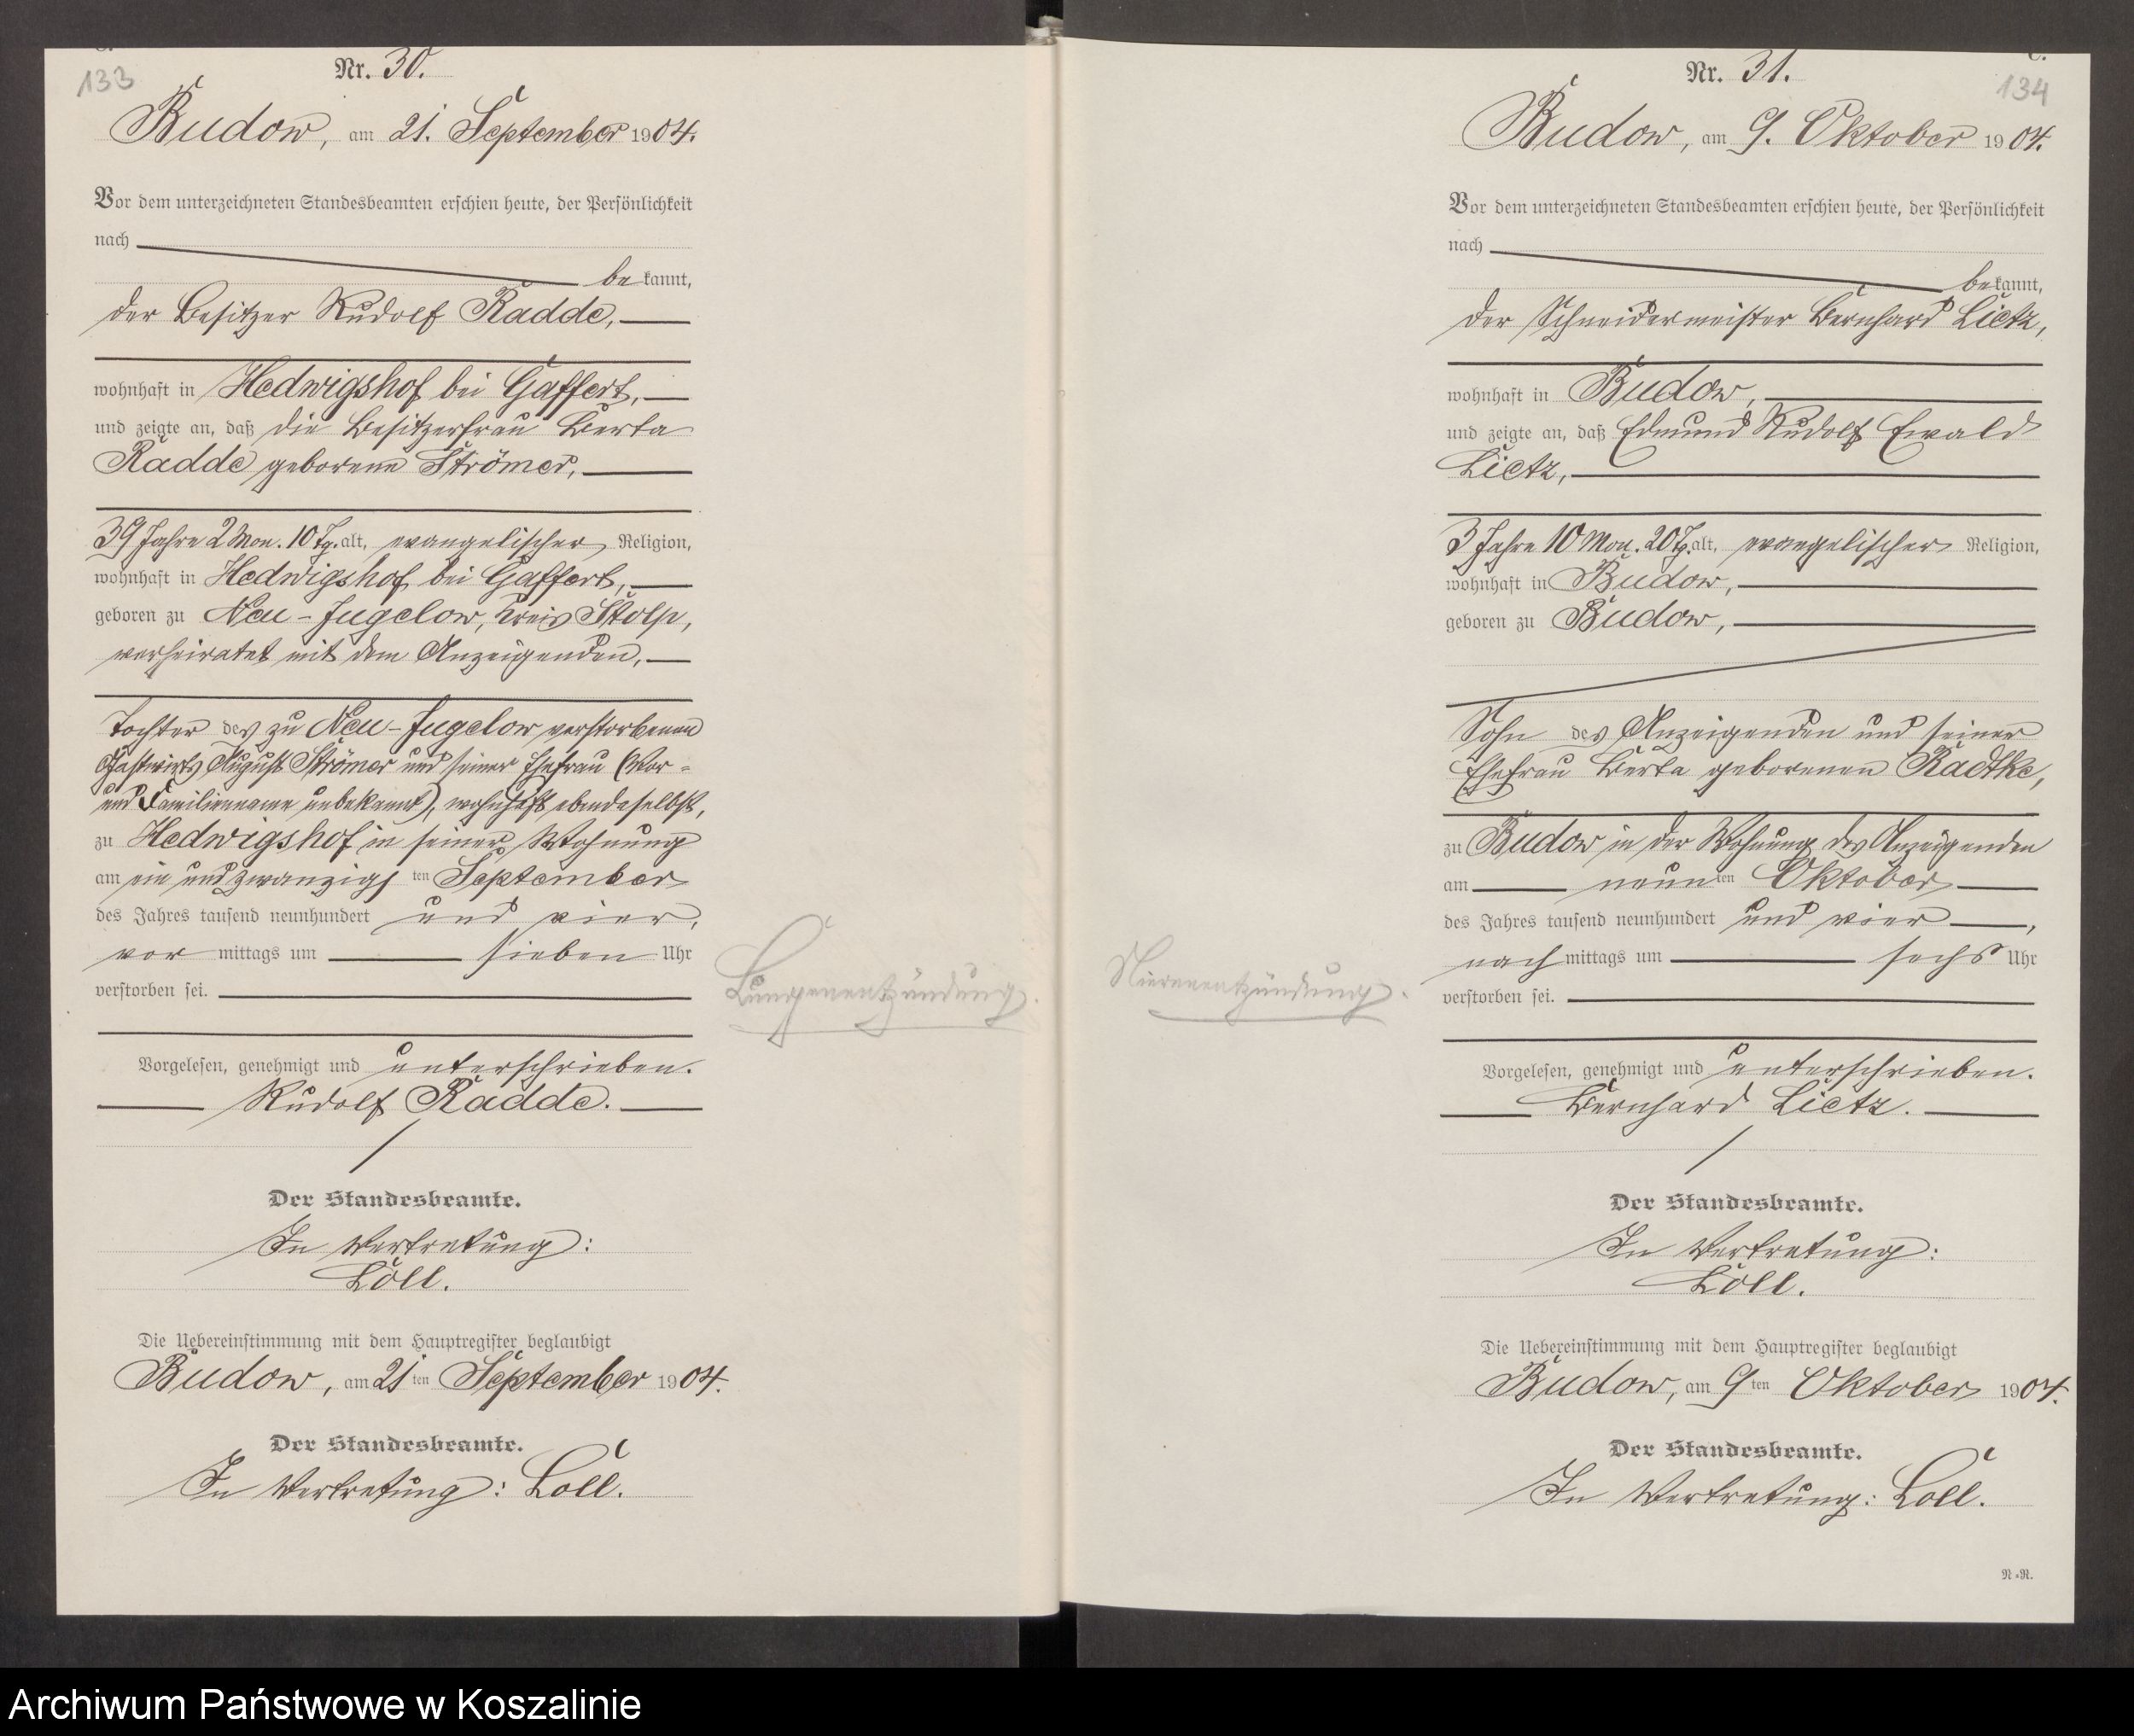 133
Nr. 30.
Budow, am 21. September 1904.
Vor dem unterzeichneten Standesbeamten erschien heute, der Persönlichkeit
nach
bekannt,
der Besitzer Rudolf Radde,
wohnhaft in Hedwigshof bei Gaffert,
und zeigte an, daß die Besitzerfrau Berta
Radde geborene Strömer,
39 Jahre 2 Mon. 10 Tg. alt, evangelischer Religion,
wohnhaft in Hedwigshof bei Gaffert,
geboren zu Neu-Jugelow, Kreis Stolp,
verheiratet mit dem Anzeigenden,
Tochter des zu Neu-Jugelow verstorbenen
Gastwirts August Strömer und seiner Ehefrau (Vor-
und Familienname unbekannt), wohnhaft ebendaselbst,
zu Hedwigshof in seiner Wohnung
am ein und zwanzigsten September
des Jahres tausend neunhundert und vier,
vormittags um sieben Uhr
verstorben sei.
Lungenentzündung.
Vorgelesen, genehmigt und unterschrieben.
Rudolf Radde.
Der Standesbeamte.
In Vertretung:
Löll.
Die Uebereinstimmung mit dem Hauptregister beglaubigt
Budow, am 21ten September 1904.
Der Standesbeamte.
In Vertretung: Löll.
Nr. 31.
134
Budow, am 9. Oktober 1904.
Vor dem unterzeichneten Standesbeamten erschien heute, der Persönlichkeit
nach
bekannt,
der Schneidermeister Bernhard Lietz,
wohnhaft in Budow,
und zeigte an, daß Edmund Rudolf Ewald
Lietz,
3 Jahre 10 Mon. 20 Tg. alt, evangelischer Religion,
wohnhaft in Budow,
geboren zu Budow,
Sohn des Anzeigenden und seiner
Ehefrau Berta geborenen Radtke,
zu Budow in der Wohnung des Anzeigenden
am neunten Oktober
des Jahres tausend neunhundert und vier,
nachmittags um sechs Uhr
verstorben sei.
Nierenentzündung.
Vorgelesen, genehmigt und unterschrieben.
Bernhard Lietz.
Der Standesbeamte.
In Vertretung:
Löll.
Die Uebereinstimmung mit dem Hauptregister beglaubigt
Budow, am 9ten Oktober 1904.
Der Standesbeamte.
In Vertretung: Löll.
N.R.
Archiwum Państwowe w Koszalinie